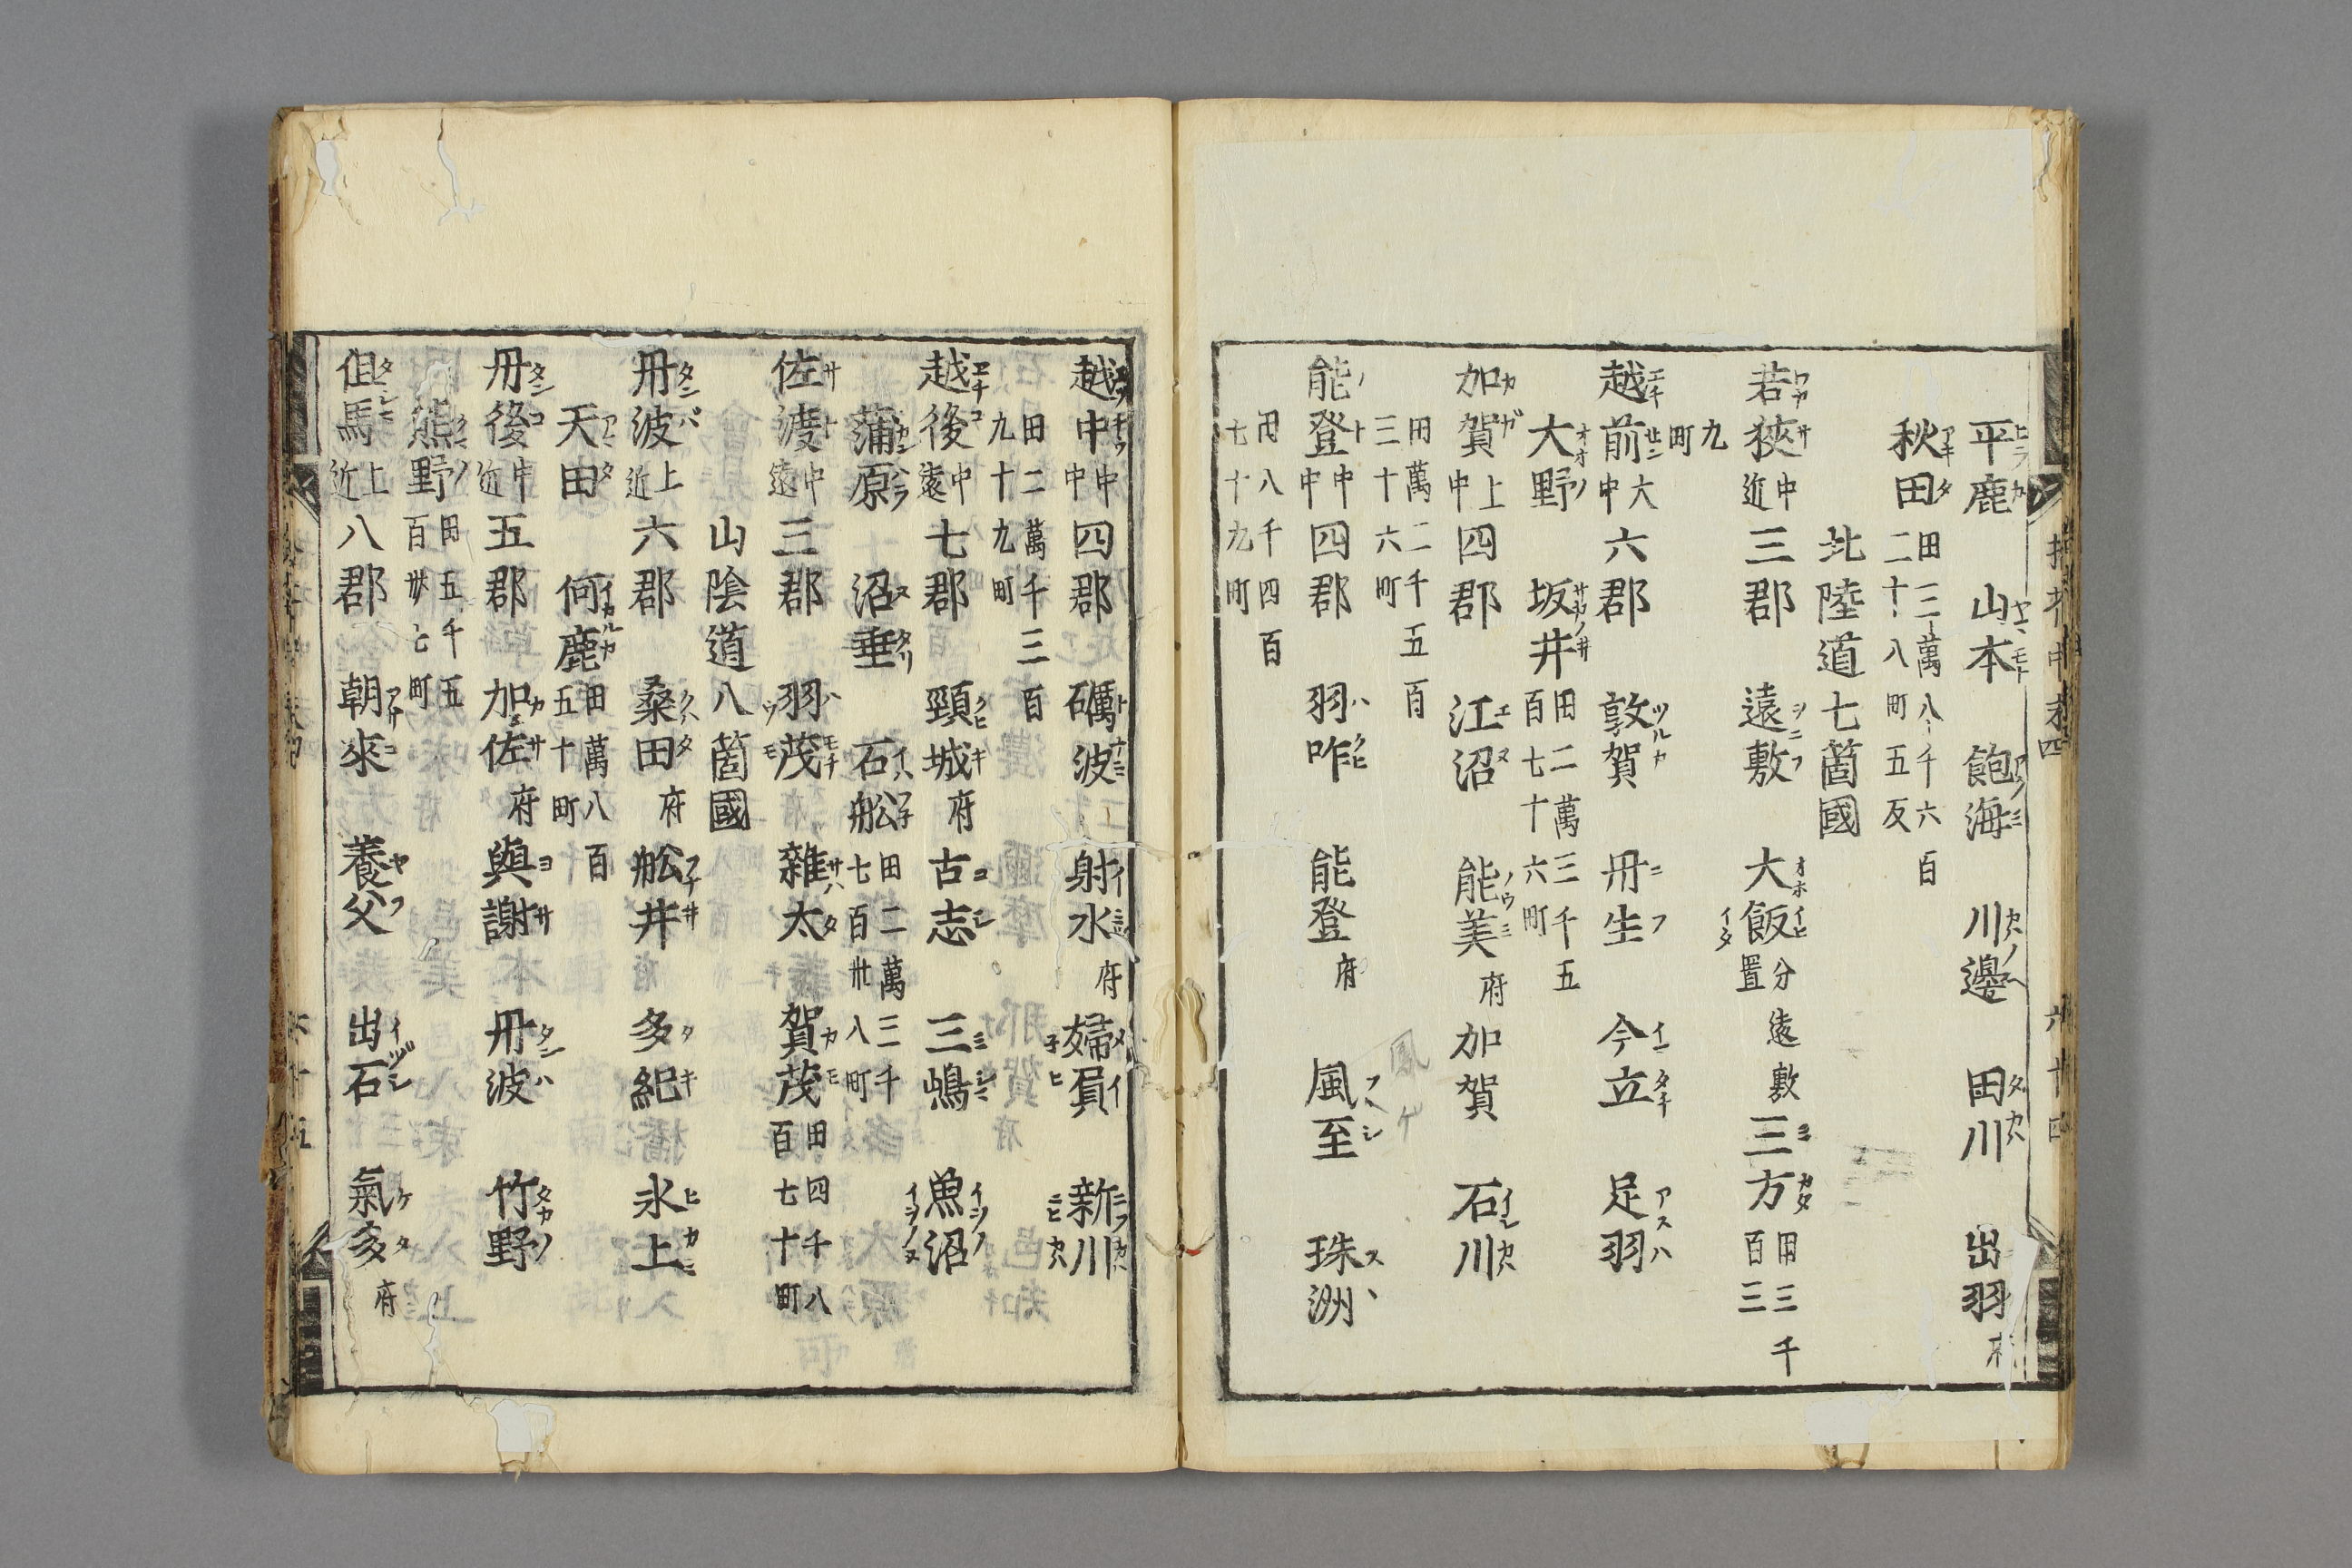 平鹿 山本 飽海 川邊 田川 出羽府
秋田 田二萬八千六百二十八町五反
北陸道七箇國
若狹中近三郡 遠敷 大飯分遠敷置 三方田三千百三
九町
越前大中六郡 敦賀 丹生 今立 足羽
大野 坂井田二萬三千五百七十六町
加賀上中四郡 江沼 能美府 加賀 石川
田萬二千五百三十六町
能登中中四郡 羽咋 能登府 風至 珠洲
田八千四百七十九町
越中中中四郡 礪波 射水府 婦負 新川
田二萬千三百九十九町
越後中遠七郡 頸城府 古志 三嶋 魚沼
蒲原 沼垂 石舩田二萬三千七百卅八町
佐渡中遠三郡 羽茂 雜太 賀茂田四千八百七十町
山陰道八箇國
丹波上近六郡 桑田府 舩井 多紀 氷上
天田 何鹿田萬八百五十町
丹後中近五郡 加佐府 與謝 丹波 竹野
熊野田五千五百卅七町
但馬上近八郡 朝來 養父 出石 氣多府